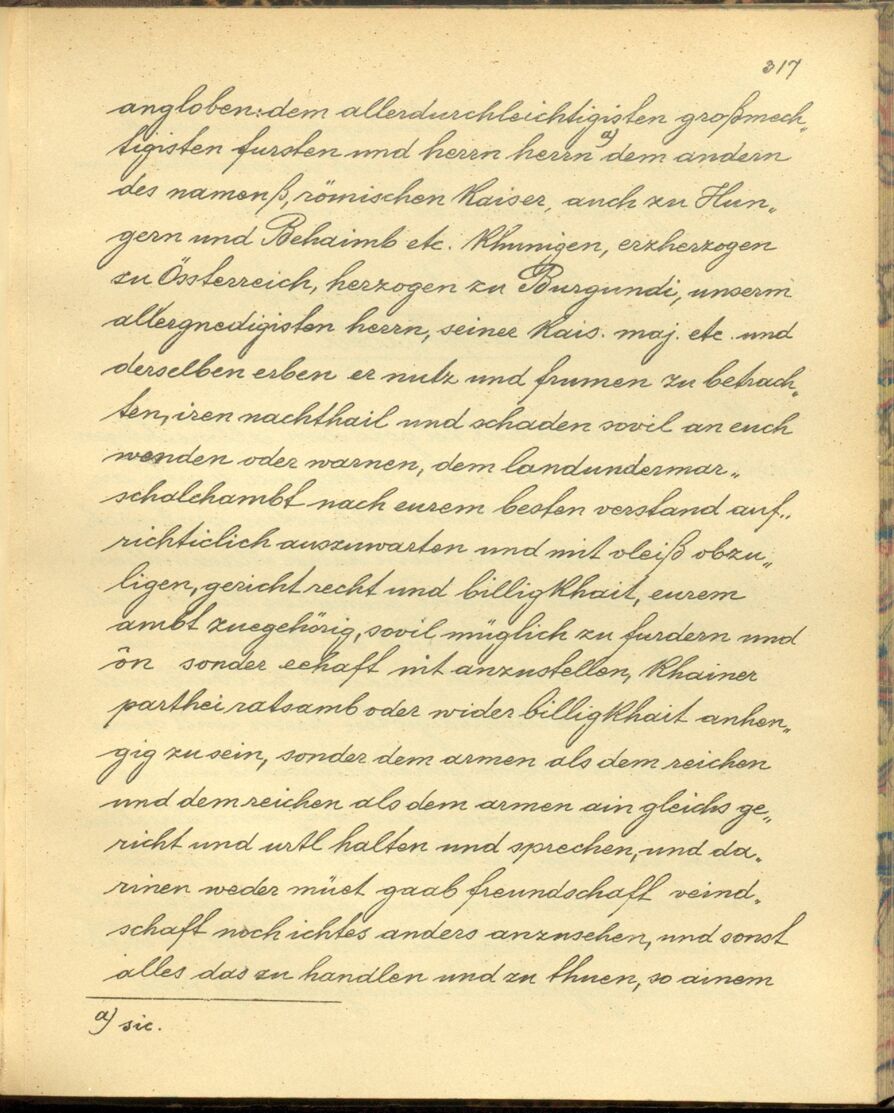 317
angloben: dem allerdurchleichtigisten großmech„
tigisten fursten und herrn herrn a) dem andern
des namenß, römischen Kaiser, auch zu Hun„
gern und Behaimb etc. Khunigen, erzherzogen
zu Össterreich, herzogen zu Burgundi, unserm
allergnedigisten herrn, seiner Kais. maj. etc. und
derselben erben er nutz und frumen zu betrach„
ten, iren nachthail und schaden sovil an euch
wenden oder warnen, dem landundermar„
schalchambt nach eurem besten verstand auf„
richticlich auszuwarten und mit vleiß obzu„
ligen, gericht recht und billigkhait, eurem
ambt zuegehörig, sovil müglich zu furdern und
ôn sonder eehaft nit anzustellen, Khainer
parthei ratsamb oder wider billigkhait anhen„
gig zu sein, sonder dem armen als dem reichen
und dem reichen als dem armen ain gleichs ge„
richt und urtl halten und sprechen, und da„
rinen weder müet gaab freundschaft veind„
schaft noch ichtes anders anzusehen, und sonst
alles das zu handlen und zu thuen, so ainem
a) sic.